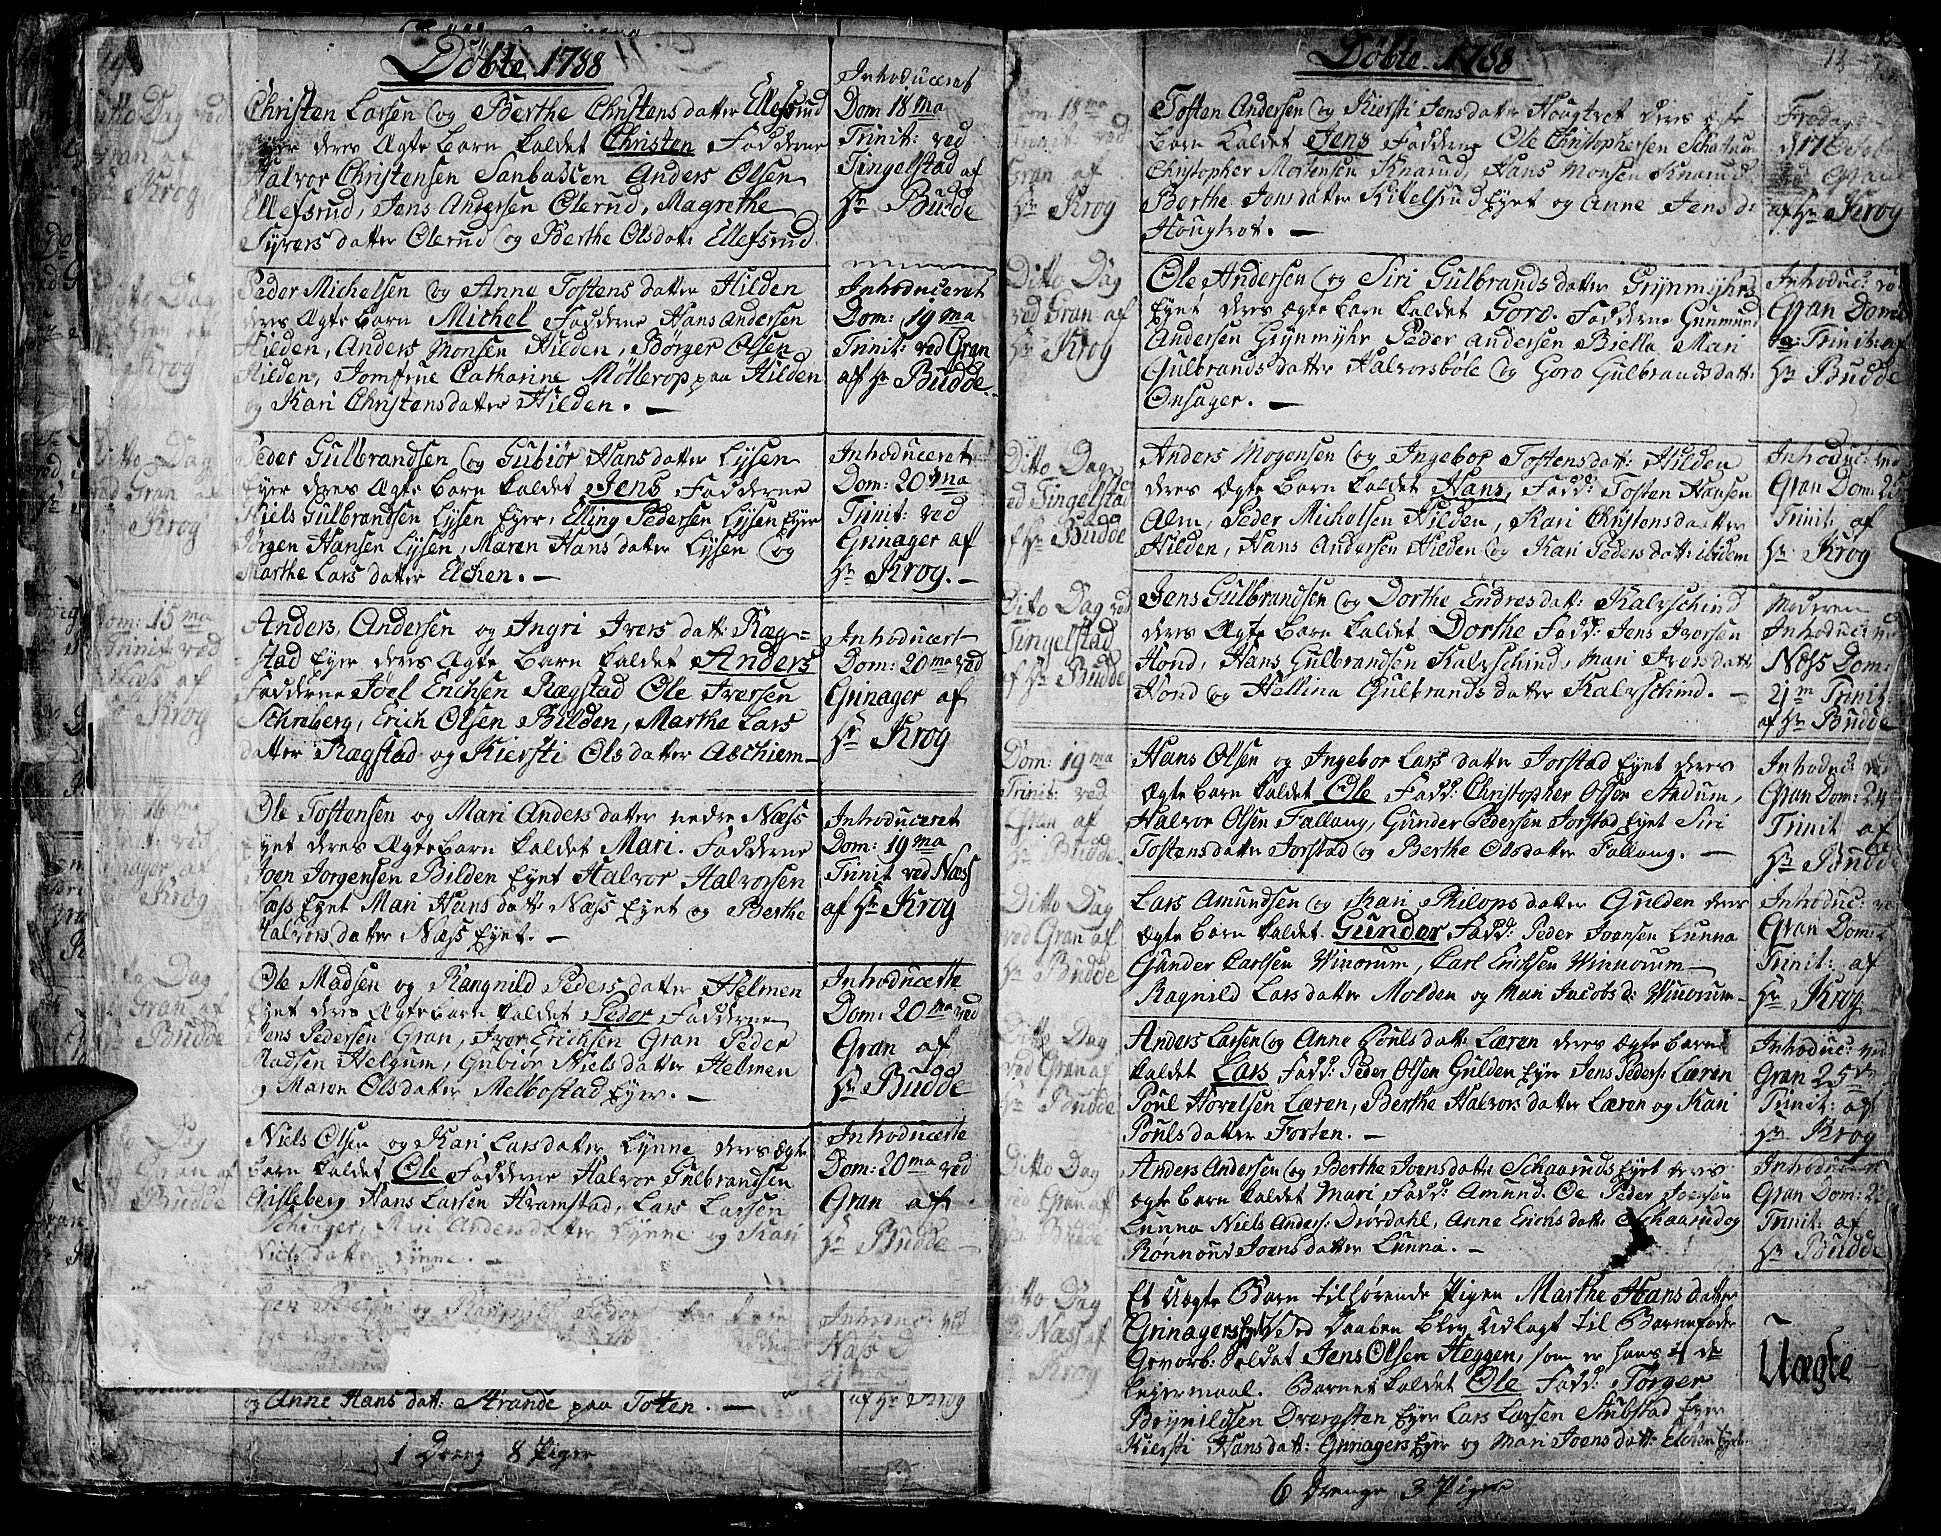 Döbte 1788
Ditto Dag ved
Gran af
Hr Krog
Christen Larsen og Berthe Christens datter Ellefsrud
Eyer deres Ægte Barn kaldet Christen Fadderne
Halvor Christensen Sanbassen Anders Olsen
Ellefsrud, Jens Andersen Olerud, Magrethe
Syvers datter Olerud og Berthe Olsdatt: Ellefsrud.
Introduceret
Dom 18ma
Trinit: ved
Tingelstad af
Hr Budde
Ditto Dag
Krog
Peder Michelsen og Anne Tostens datter Hilden
deres Ægte Barn Michel Fadderne Hans Andersen
Hilden, Anders Monsen Hilden, Borger Olsen
Hilden, Jomfrue Catharine Möllerop paa Hilden
og Kari Christensdatter Hilden. —
Introduceret
Dom: 19ma
Trinit: ved Gran
af Hr Budde.
Ditto Dag
ved Gran af
Hr Krog
Peder Gulbrandsen og Gubiör Hans datter Lysen
Eyer deres Ægte Barn kaldet Jens Fadderne
Niels Gulbrandsen Lysen Eyer, Elling Pedersen Lysen Eyer
Jörgen Hansen Lysen, Maren Hans datter Lysen og
Marthe Lars datter Elchen. —
Introduceret
Dom: 20ma
Trinit: ved
Grinager af
Hr Krog. —
Dom: 15ma
Trinit ved
Næss af
Hr Krog
Anders Andersen og Ingri Ivers datt: Ræg-
stad Eyer deres Ægte Barn kaldet Anders
Fadderne Joel Erichsen Rægstad Ole Iversen
Schreberg, Erich Olsen Bilden, Marthe Lars
datter Ragstad og Kiersti Olsdatter Aschiem —
Introducert
Dom: 20ma ved
Grinager af
Hr Krog
16ma
ved
Grinager af
Hr Krog
Ole Tostensen og Mari Anders datter nedre Næss
Eyet deres Ægte Barn kaldet Mari. Fadderne
Joen Jorgensen Bilden Eyet Halvor Halvorsen
Næss Eyet Mari Hans datt: Næss Eyet og Berthe
Halvors datter Næss Eyet. —
Introduceret
Dom: 19ma
Trinit ved Næss
af Hr Krog
Ditto Dag
ved Gran af
Hr Budde
Ole Madsen og Rangnild Peders datter Helmen
Eyet deres Ægte Barn kaldet Peder Fadderne
Jens Pedersen Gran, Iver Erichsen Gran Peder
Madsen Helgum, Gubiör Niels datter Helmen
og Maren Olsdatter Melbostad Eyer. —
Introducerte
Dom: 20ma ved
Gran af
Hr Budde
Ditto Dag
ved Gran af
Hr Budde
Niels Olsen og Kari Lars datter Lynne deres Ægte
Barn kaldet Ole Fadderne Halvor Gulbrandsen
Gisleberg Hans Larsen Framstad, Lars Larsen
Schiager, Mari Anders datter Lynne og Kari
Niels datter Lynne. —
Introducerte
Dom: 20ma ved
Gran af
Hr Budde
og Rangnild Peders
Introduc: ved
Næss D
21ma
af Hr Krog
og Anne Hans datt: Strande paa Toten. —
1 Dreng 8 Piger
Döbte 1788
14
Dom 18ma
Trinit: ved
Gran af
Hr Krog
Tosten Andersen og Kiersti Jens datter Hougtvet deres Ægte
Barn kaldet Jens Fadderne Ole Christophersen Schattum
Christopher Mortensen Knarud, Hans Monsen Knarud
Berthe Jons datter Kittelsrud Eyet og Anne Jens d:
Hougtvet. —
Fredag
d 17 Octob
Gran
af Hr Krog
Ditto Dag
ved Gran af
Hr Krog
Ole Andersen og Siri Gulbrands datter Grynmyhrs
Eyet deres Ægte Barn kaldet Goro. Fadderne Gunmund
Andersen Grynmyhr Peder Andersen Bietta Mari
Gulbrands datter Halvorsböle og Goro Gulbrands datt:
Onsager. —
Introduc: ved
Gran Dom:
Trinit: af
Hr Budde
Ditto Dag
ved Tingelstad
af Hr Budde
Anders Mogensen og Ingebor Tostens datt: Hilden
deres Ægte Barn kaldet Hans, Fadd: Tosten Hansen
Alm, Peder Michelsen Hilden, Kari Christens datter
Hilden, Hans Andersen Hilden og Kari Peders datt: ibidem
Introduc: ved
Gran Dom:
Trinit: af
Hr Krog
Ditto Dag ved
Tingelstad
af Hr Budde
Jens Gulbrandsen og Dorthe Endres datt: Kalvschind
deres Ægte Barn kaldet Dorthe Fadd: Jens Iversen
Hond, Hans Gulbrandsen Kalvschind, Mari Ivers datt:
Hond og Hellina Gulbrands datter Kalvschind. —
Moderen
Introduc: ved
Næss Dom:
21m Trinit:
af Hr Budde
Dom: 19ma
Trinit: ved
Gran af
Hr Budde
Hans Olsen og Ingebor Lars datter Jorstad Eyet deres
Ægte Barn kaldet Ole Fadd: Christopher Olsen Andum,
Halvor Olsen Fallang, Gunder Pedersen Jorstad Eyet Siri
Tostens datter Jorstad og Berthe Olsdatter Fallang. —
Introduc: ved
Gran Dom: 24
Trinit: af
Hr Budde
Ditto Dag
ved Gran af
Hr Budde
Lars Amundsen og Kari Philops datter Gulden deres
Ægte Barn kaldet Gunder Fadd: Peder Joensen Lunna
Gunder Carlsen Winorum, Carl Erichsen Winnorum —
Ragnild Lars datter Molden og Mari Jacobs d: Winorum —
Introduc: ved
Gran Dom:
Trinit: af
Hr Krog
Ditto Dag
ved Gran af
Hr Budde
Anders Larsen og Anne Pouls datt: Læren deres Ægte Barn
kaldet Lars Fadd: Peder Olsen Gulden Eyer Jens Peders: Læren
Poul Hovelsen Læren, Berthe Halvors datter Læren og Kari
Pouls datter Forten. —
Introduc: ved
Gran 25de
Trinit: af
Hr Krog
Ditto Dag
ved Gran af
Hr Budde
Anders Andersen og Berthe Joens datt: Schaaruds Eyet deres
Ægte Barn kaldet Mari Fadd: Amund Oe Peder Joensen
Lunna Niels Anders: Drövdahl, Anne Erichs datt: Schaarud og
Rönnoud Joens datter Lunna. —
Introduc:
Gran Dom: 22
Trinit: af
Hr Budde
Ditto Dag
ved Næss af
Hr Krog
Et Uægte Barn tilhörende Pigen Marthe Hans datter
Grinagers Eyet Ved Daaben blev Udlagt til Barnefader
Gevorb: Soldat Jens Olsen Heggen, som er hans 1de
Leyermaal. Barnet kaldet Ole Fadd: Torger
Brynildsen Drægsten Eyer Lars Larsen Stubstad Eyer
Kiersti Hans datt: Grinagers Eyer og Mari Joens datt: Elchen Eyet.
Uægte
6 Drenge 3 Piger